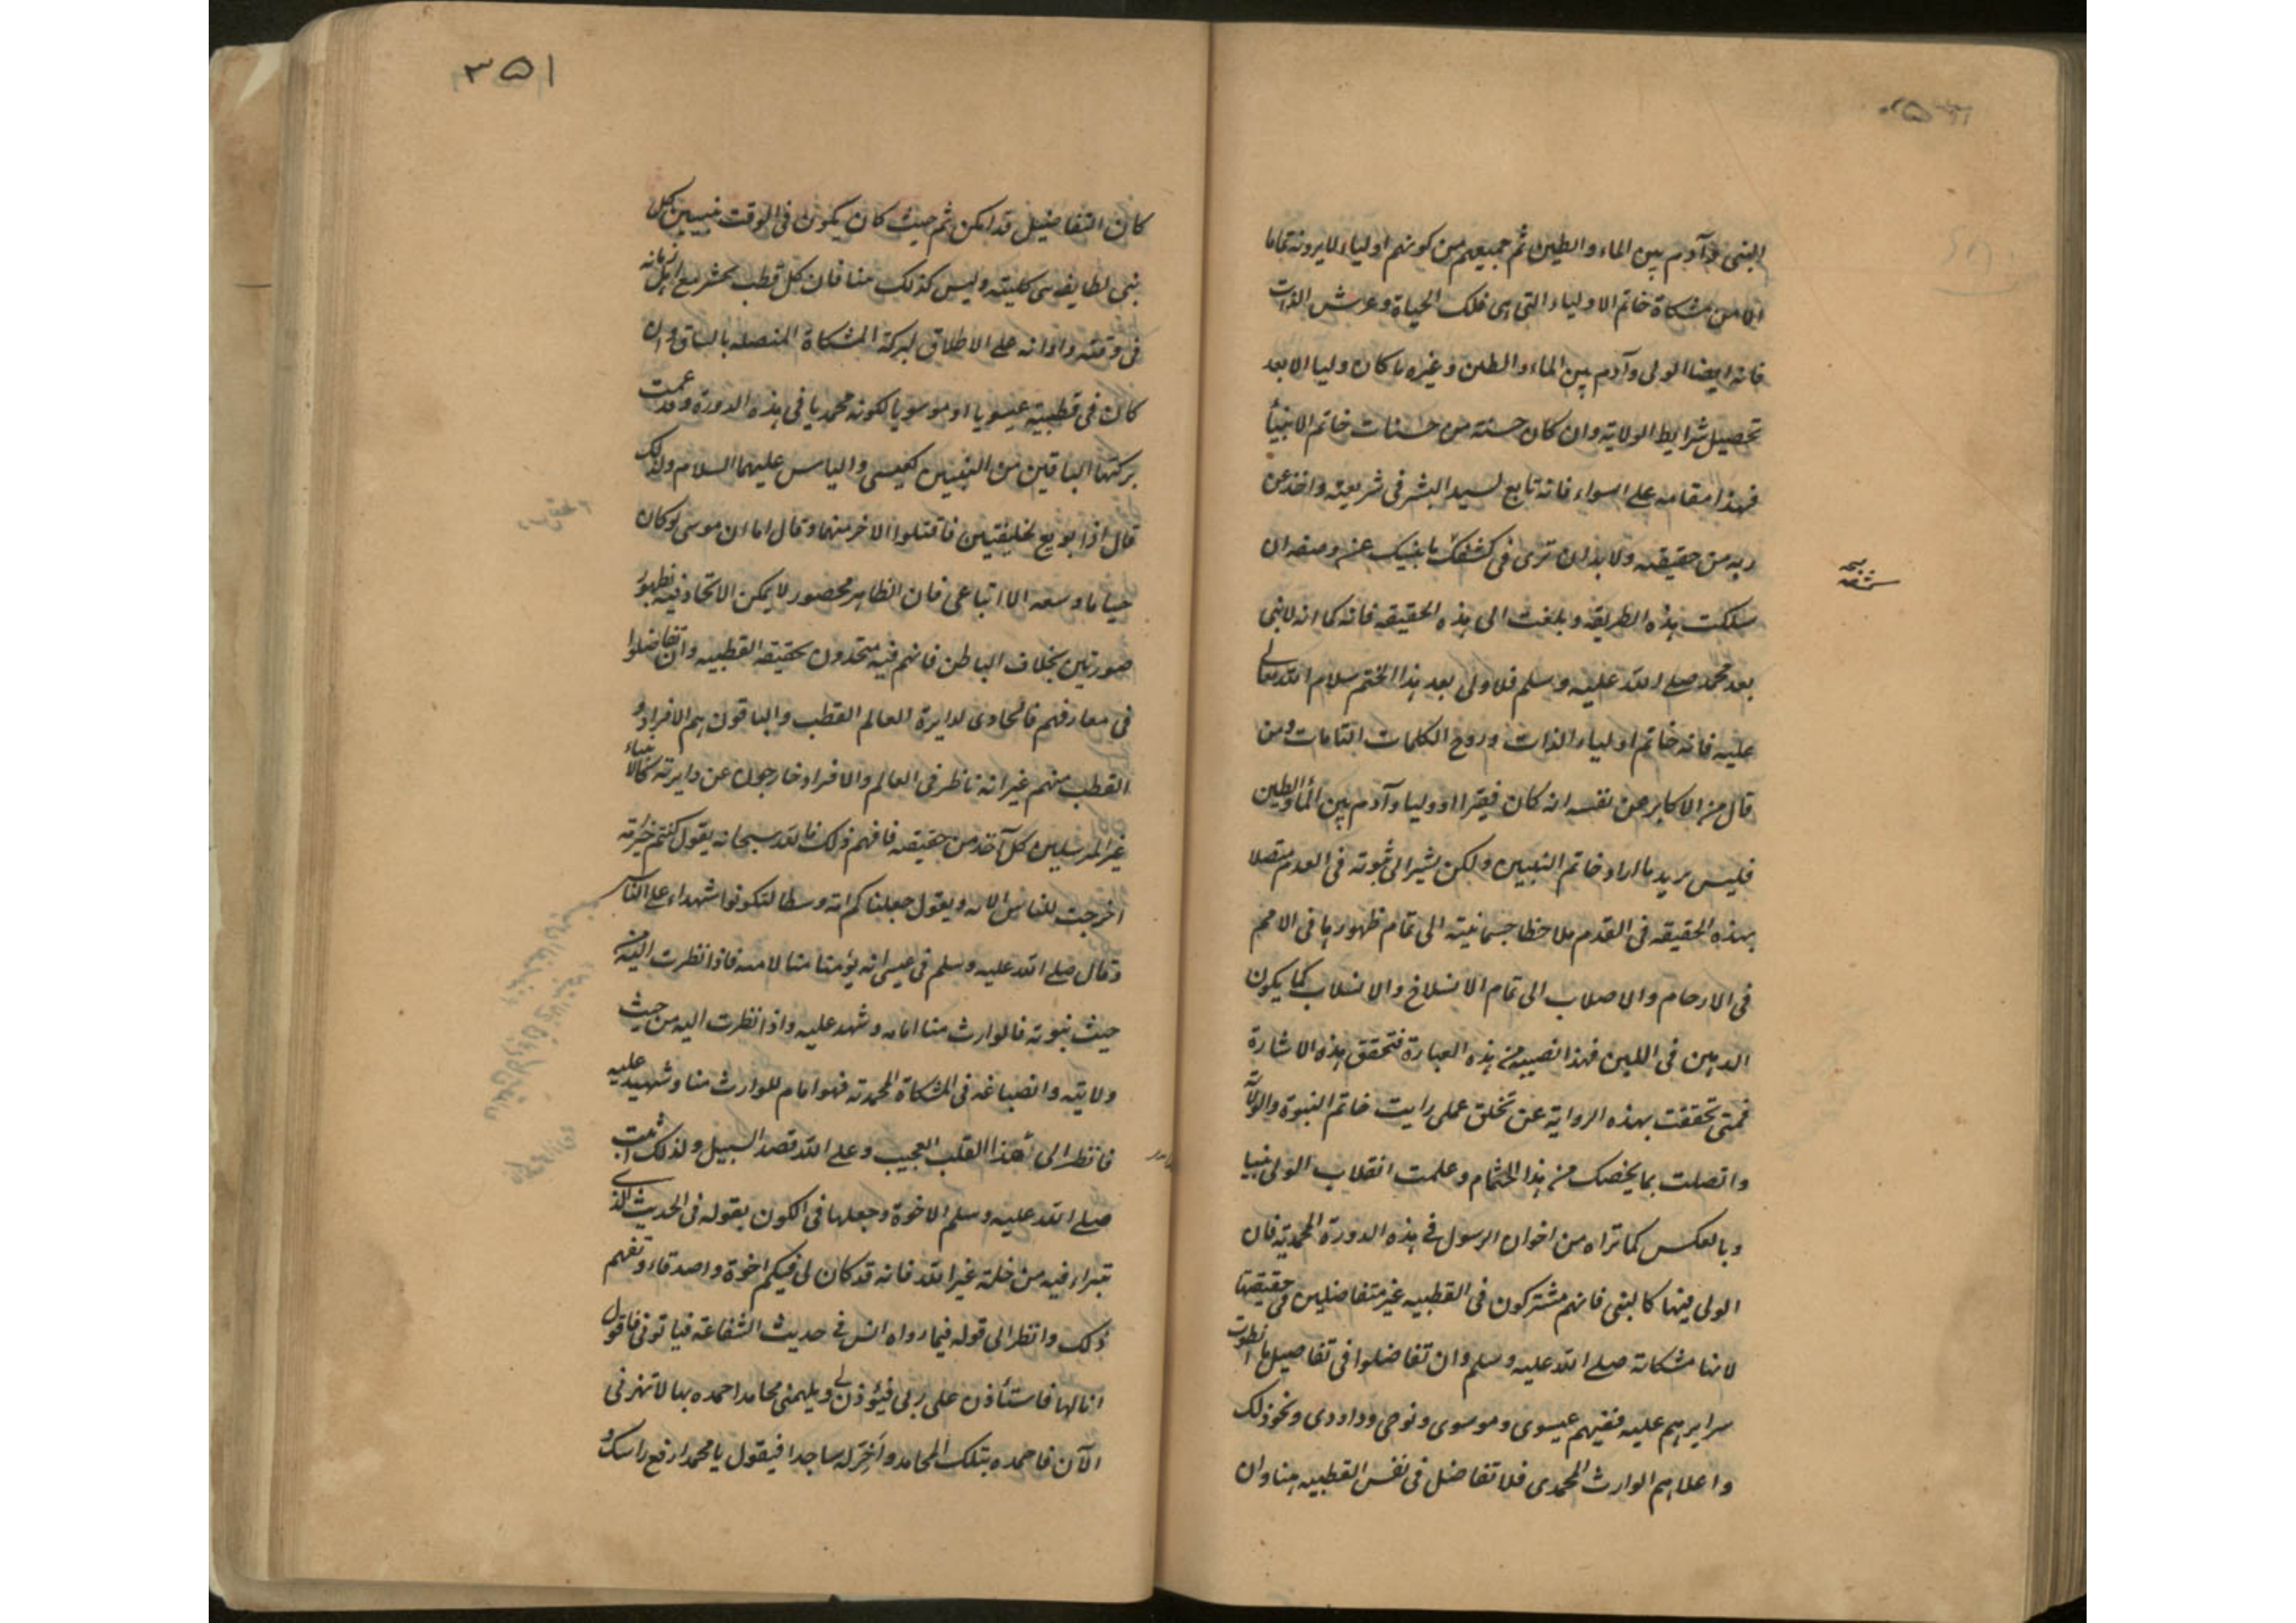 النبی وآدم بین الماء والطین ثم جمیعهم من کونهم اولیاء لا یرونه تماما
الا من مشکاة خاتم الاولیاء التی هی فلک الحیاة وعرش الذات
فانه ایضا الولی وآدم بین الماء والطین وغیره ما کان ولیا الا بعد
تحصیل شرایط الولایة وان کان حسنة من حسنات خاتم الانبیأ
فهذا مقامه علی السواء فانه تابع لسید البشر فی شریعته واخذ عن
ربه من حقیقته ولا بد ان تری فی کشفک ما ینبیک عنه وصفه ان
سلکت هذه الطریقه وبلغت الی هذه الحقیقه فانه کما انه لا نبی
بعد محمد صلی الله علیه وسلم فلا ولی بعد هذا الختم سلام الله تعالی
علیه فانه خاتم اولیاء الذات وروح الکلمات التامات ومن
قال من الاکابر عن نفسه انه کان فقیرا او ولیا وآدم بین المأ والطین
فلیس یرید ما اراد خاتم النبیین ولکن یشیر الی ثبوته فی العدم متصلا
بهذه الحقیقه فی القدم ملاحظا جسمانیته الی تمام ظهورها فی الامم
فی الارحام والاصلاب الی تمام الانسلاخ والانسلاب کما یکون
الدهن فی اللبن فهذا نصیبه من هذه العبارة فتحقق هذه الاشارة
فمتی تحققت بهذه الروایة عن تخلق عملی رایت خاتم النبوة والولایة
واتصلت بما یخصک من هذا الختام وعلمت انقلاب الولی نبیا
وبالعکس کما تراه من اخوان الرسول فی هذه الدورة المحمدیة فان
الولی فیها کالنبی فانهم مشترکون فی القطبیه غیر متفاضلین فی حقیقتها
لانها مشکاته صلی الله علیه وسلم وان تفاضلوا فی تفاصیل ما انطوت
سرایرهم علیه ففیهم عیسوی وموسوی ونوحی وداودی ونحو ذلک
واعلاهم الوارث المحمدی فلا تفاضل فی نفس القطبیه هنا وان
٣٥١
کان التفاضیل قد امکن ثم حیث کان یکون فی الوقت نبیین کل
نبی لطایفة کلیته ولیس کذلک هنا فان کل قطب یحشر مع اهل زمانه
فی وقته واوانه علی الاطلاق لبرکة المشکاة المتصله بالساق وان
کان فی قطبیته عیسویا او موسویا لکونه محمدیا فی هذه الدورة وقد عمت
برکتها الباقین من النبیین کعیسی والیاس علیهما السلام ولذلک
قال اذا بویع لخلیفتین فاقتلوا الاخر منهما وقال اما ان موسی لو کان
حیا ما وسعه الا اتباعی فان الظاهر محصور لا یمکن الاتحاد فیه لظهور
صورتین بخلاف الباطن فانهم فیه متحدون بحقیقه القطبیه وان تفاضلوا
فی معارفهم فالحاوی لدایرة العالم القطب والباقون هم الافراد و
القطب منهم غیر انه ناظر فی العالم والافراد خارجون عن دایرته کالانبیاء
غیر المرسلین کل آخذ من حقیقته فافهم ذلک فالله سبحانه یقول کنتم خیر امة
اخرجت للناس الایه ویقول جعلناکم امة وسطا لتکونوا شهداء علی الناس
وقال صلی الله علیه وسلم فی عیسی انه یؤمنا منا لا منه فاذا نظرت الیه من
حیث نبوته فالوارث منا امامه وشهد علیه واذا نظرت الیه من حیث
ولایته وانصباغه فی المشکاة المحمدیة فهو امام للوارث منا وشهید علیه
فانظر الی هذا القلب العجیب وعلی الله قصد السبیل ولذلک اثبت
صلی الله علیه وسلم الاخوة وجعلها فی الکون بقوله فی الحدیث الذی
تبراء فیه من خلة غیر الله فانه قد کان لی فیکم اخوة واصدقاء وتفهم
ذلک وانظر الی قوله فیما رواه انس فی حدیث الشفاعة فیاتونی فاقول
انا لها فاستأذن علی ربی فیؤذن لی ویلهمنی محامدا احمده بها لا تحضرنی
الآن فاحمده بتلک المحامد واخر له ساجدا فیقول یا محمد ارفع راسک و